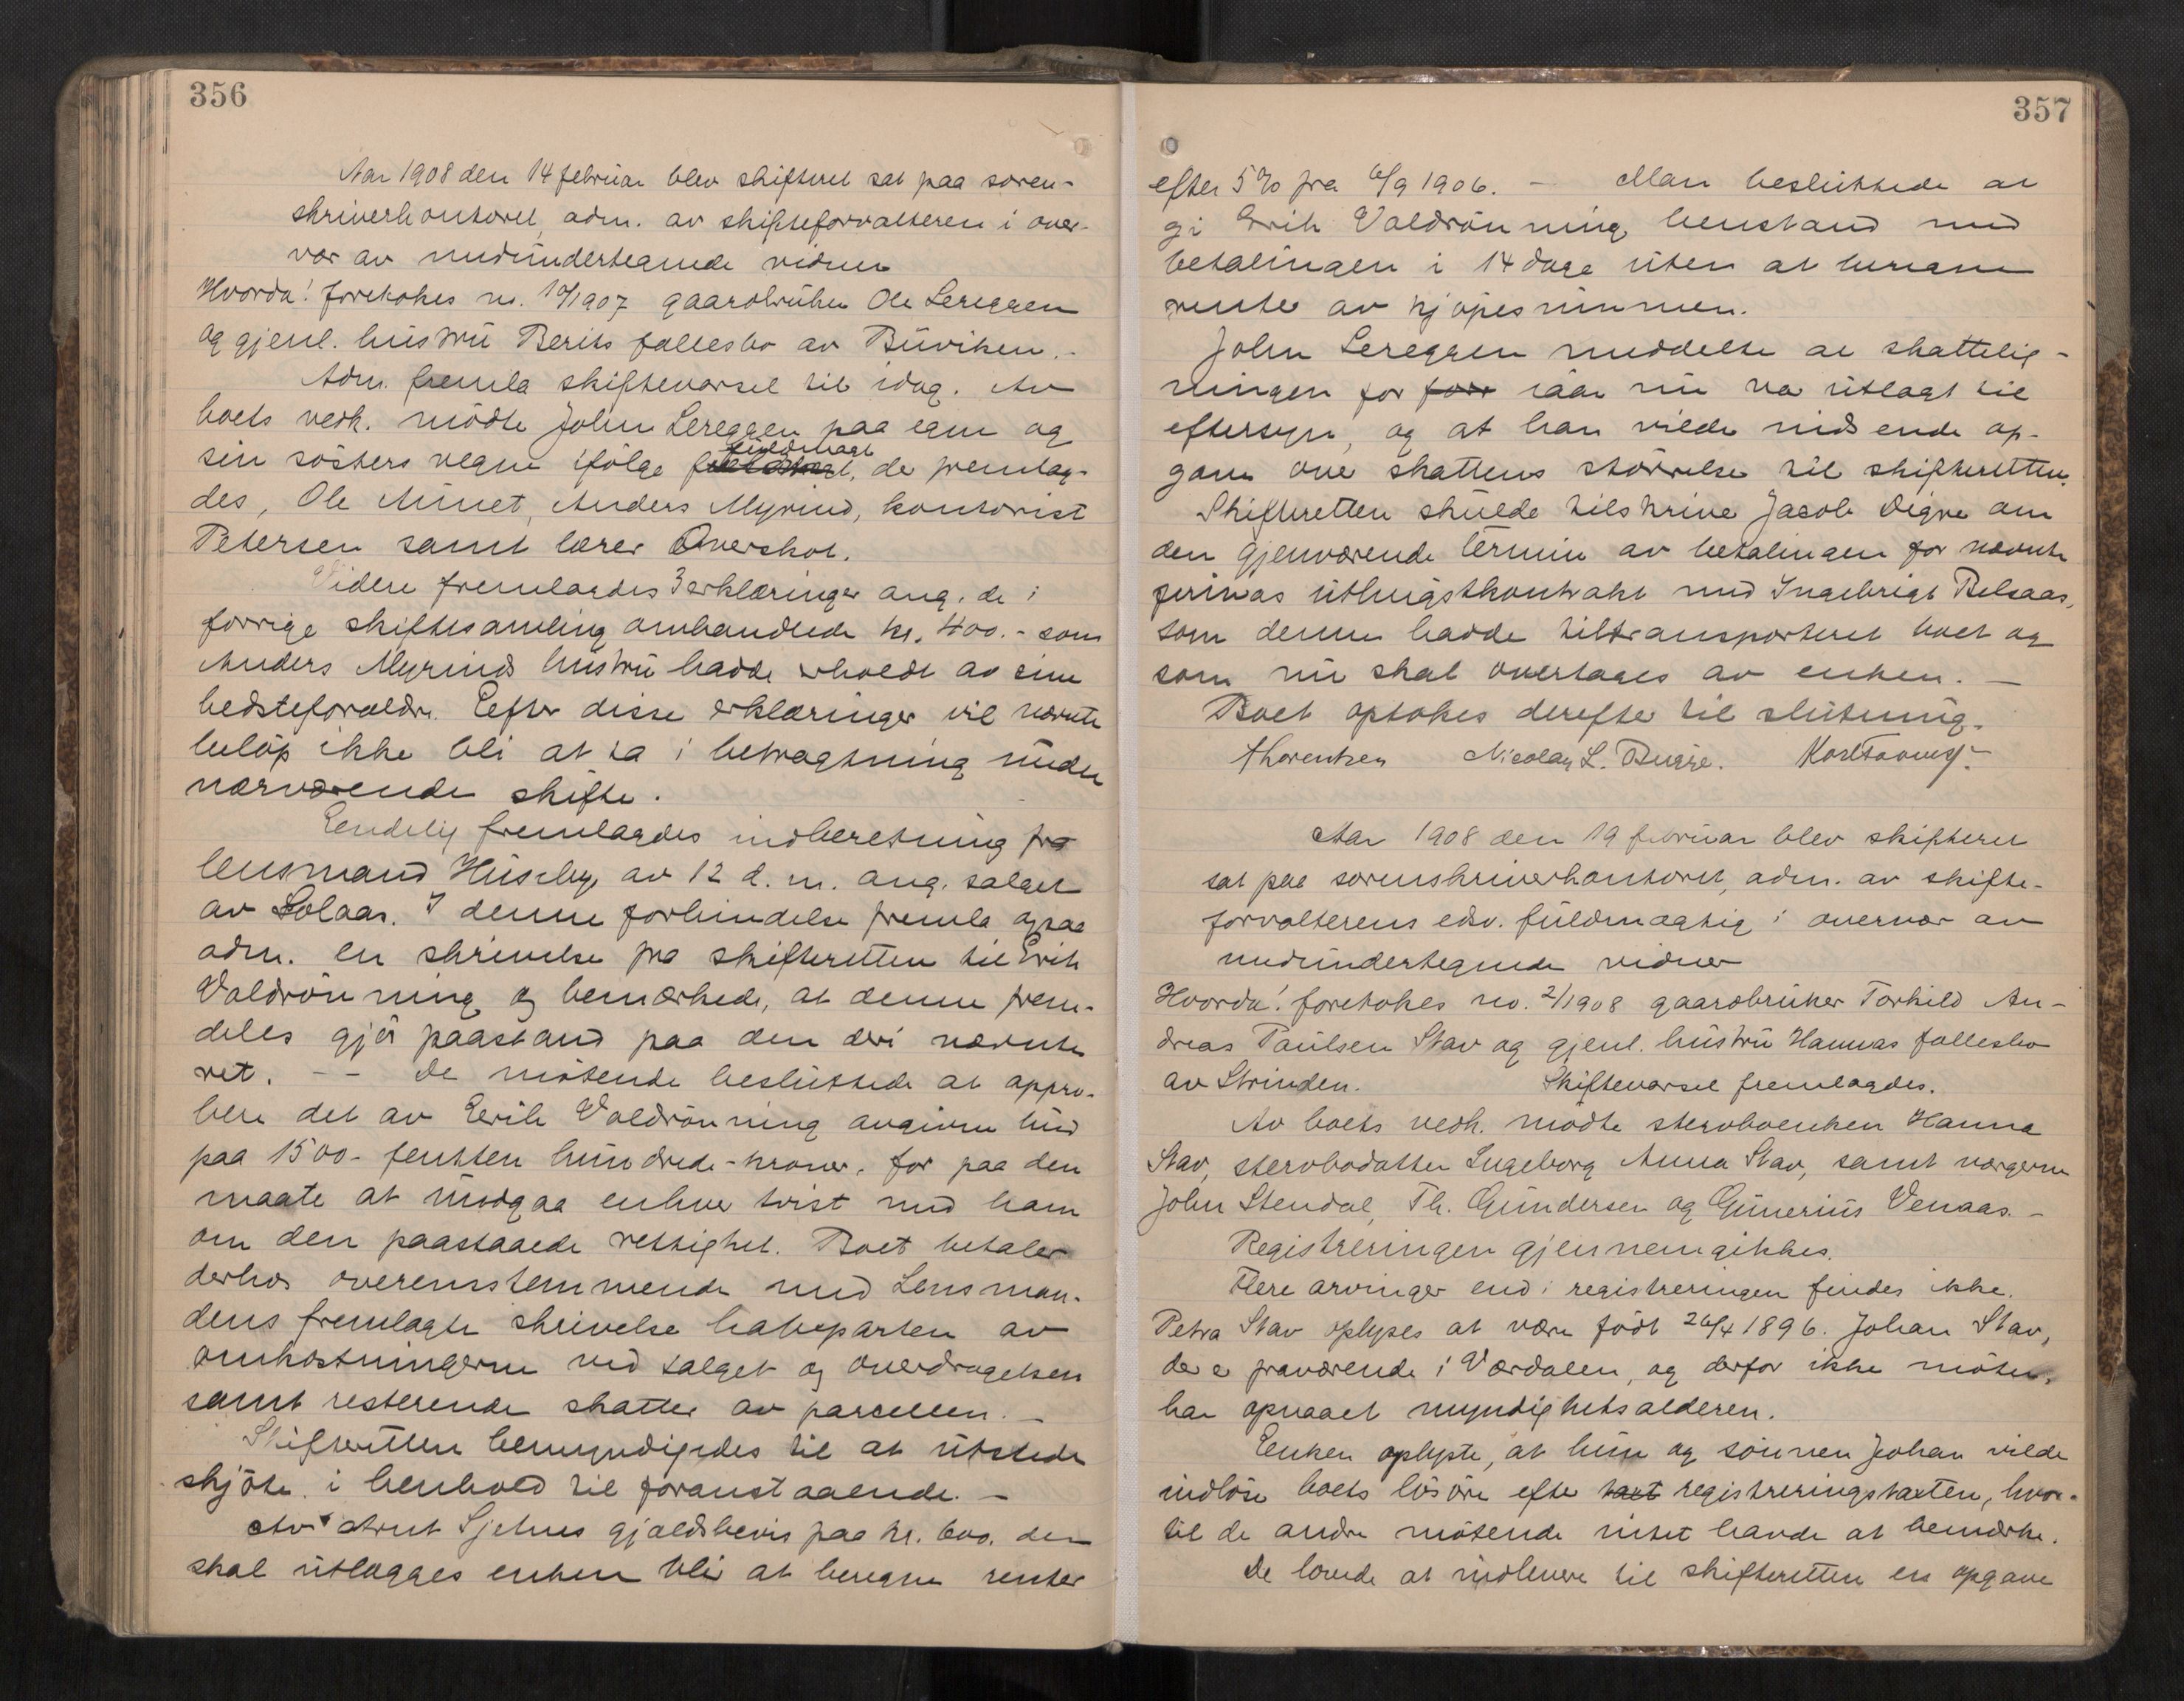 356
Aar 1908 den 14 februar blev skifteret sat paa soren-
skriverkontoret, adm. av skifteforvalteren i over-
vær av medundertegnede vidner
Hvorda! foretokes no. 10/1907 gaardbruker Ole Lereggen
og gjenl. hustru Berits fællesbo av Buviken.-
Adm. fremla skiftevarsel til idag. Av
boets vedk. mödte John Lereggen paa egne og
sin sösters vegne ifölge fuldmagt, der fremlag-
des, Ole Aunet, Anders Myrind, kontorist
Petersen samt lærer Overskot.
Videre fremlagdes 3 erklæringer ang. de i
forrige skiftesamling omhandlede kr. 400.- som
Anders Myrinds hustru hadde erholdt av sine
bedsteforældre. Efter disse erklæringer vil nævnte
belöp ikke bli at ta i betragtning under
nærværende skifte.
Endelig fremlagdes indberetning fra
lensmand Huseby av 12 d. m. ang. salget
av Solaas. I denne forbindelse fremla ogsaa
adm. en skrivelse fra skifteretten til Erik
Valdrönning og bemærkede, at denne frem-
deles gjör paastand paa den deri nævnte
ret. -- De mötende besluttede at appro-
bere det av Erik Valdrönning avgivne bud
paa 1500- femten hundrede- kroner, for paa den
maate at undgaa enhver tvist med ham
om den paastaaede rettighet. Boet betaler
derhos overensstemmende med Lensman-
dens fremlagte skrivelse halvparten av
omkostningerne ved salget og overdragelsen
samt resterende skatter av parcellen. -
Skifteretten bemyndigedes til at utstede
skjöte i henhold til foranstaaende. -
Av Arnt Sjetnes gjældsbevis paa kr. 600. der
skal utlægges enken blir at beregne renter
357
efter 5 % fra 6/9 1906. - Man besluttede at
gi Erik Valdrönning henstand med
betalingen i 14 dage uten at beregne
renter av kjöpesummen.
John Lereggen meddelte at skattelig-
ningen for for iaar nu var utlagt til
eftersyn, og at han vilde indsende op-
gave over skattens störrelse til skifteretten.
Skifteretten skulde tilskrive Jacob Digre om
den gjenværende termin av betalingen for nævnte
som denne hadde tiltransporteret boet og
som nu skal overtages av enken. -
Boet optokes derefter til slutning.
Thorentzen Nicolay L. Bugge.
Aar 1908 den 19 februar blev skifteret
sat paa sorenskriverkontoret, adm. av skifte-
forvalterens edsv. fuldmægtig i overvær av
medundertegnede vidner
Hvorda! foretokes no. 2/1908 gaardbruker Torkild An-
dreas Paulsen Stav og gjenl. hustru Hannas fællesbo
av Strinden. Skiftevarsel fremlagdes.
Av boets vedk. mödte stervboenken Hanna
Stav, stervbodatter Ingeborg Anna Stav, samt værgerne
John Stendal, Th. Gundersen og Gunerius Venaas. -
Registreringen gjennemgikkes.
Flere arvinger end i registreringen findes ikke.
Petra Stav oplyses at være födt 26/4 1896. Johan Stav,
der er fraværende i Værdalen, og derfor ikke möter,
har opnaaet myndighetsalderen.
Enken oplyste, at hun og sönnen Johan vilde
indlöse boets lösöre efter taxt registreringstaxten, hvor-
til de andre mötende intet havde at bemærke.
De lovede at indlevere til skifteretten en opgave